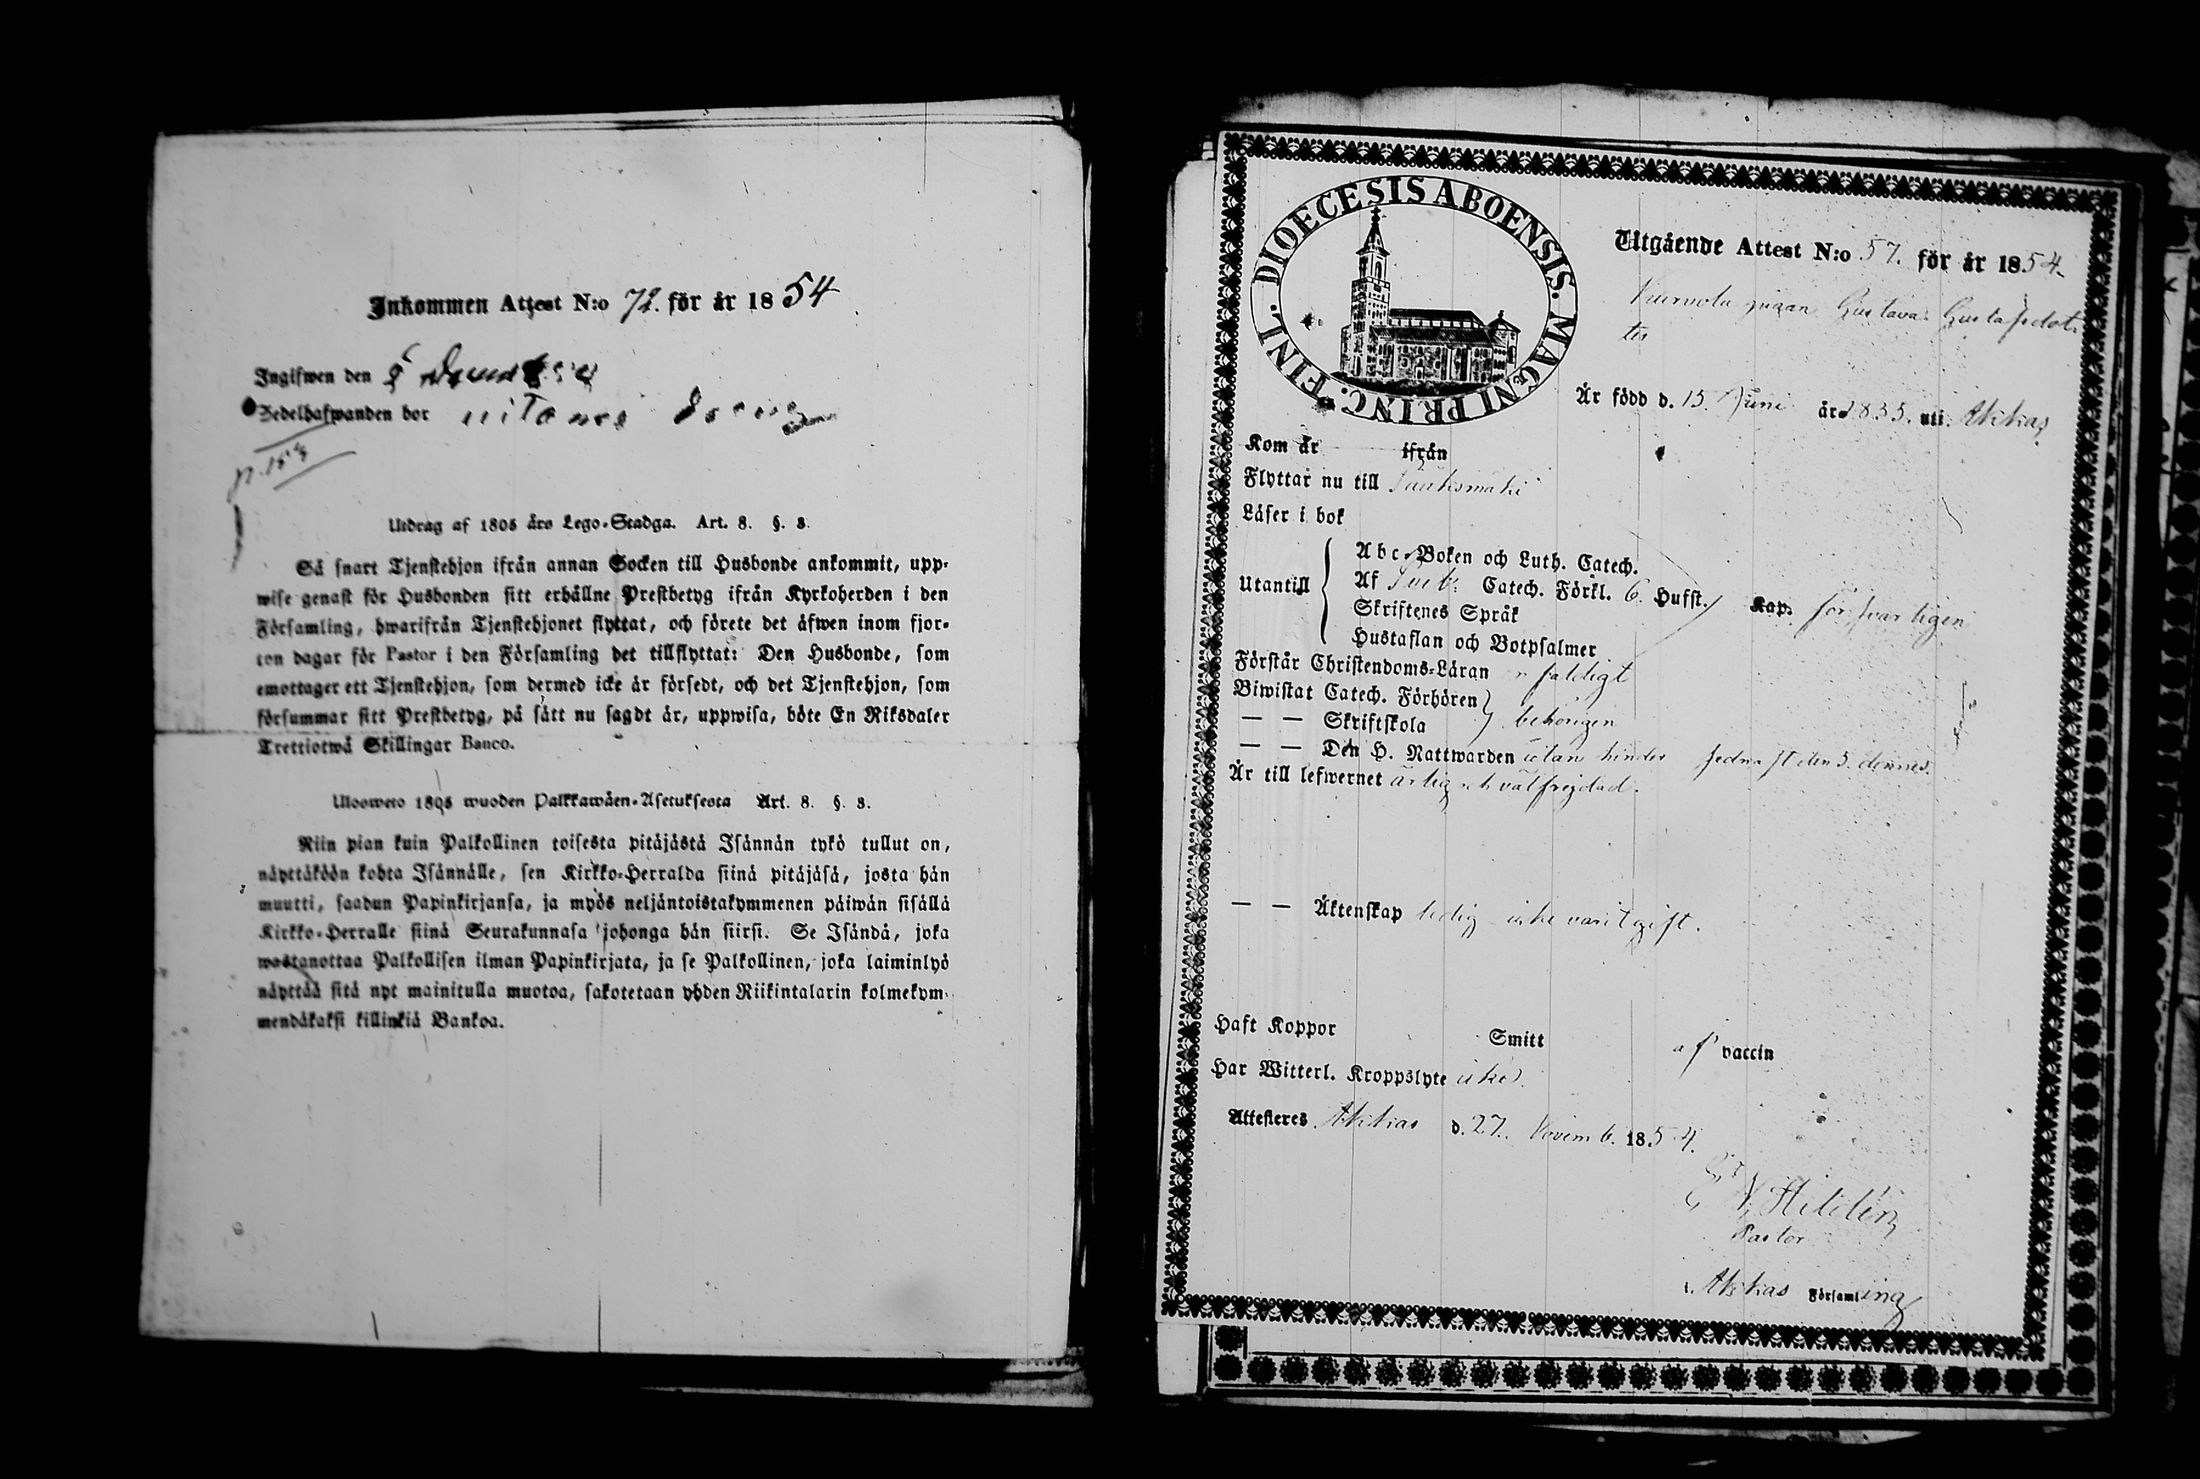 Inkommen Attest N:o 72. för år 1854
Ingifwen den
Zedelhafwanden bor
p. 153
Utdrag af 1805 års Lego-Stadga. Art. 8. §. 8.
Så snart Tjenstehjon ifrån annan Socken till Husbonde ankommit, upp-
wise genast för Husbonden sitt erhållne Prestbetyg ifrån Kyrkoherden i den
Församling, hwarifrån Tjenstehjonet flyttat, och förete det åfwen inom fjor-
ton dagar för Pastor i den Församling det tillflyttat: Den Husbonde, som
emottager ett Tjenstehjon, som dermed icke är försedt, och det Tjenstehjon, som
försummar sitt Prestbetyg, på sått nu sagdt är, uppwisa, böte En Riksdaler
Trettiotwå Skillingar Banco.
Ulosweto 1805 wuoden Palkkawäen-Asetuksesta Art. 8. §. 8.
Niin pian kuin Palkollinen toisesta pitäjästä Isännän tykö tullut on,
näyttäköön kohta Isännälle, sen Kirkko-Herralda siinä pitäjäsä, josta hän
muutti, saadun Papinkirjansa, ja myös neljäntoistakymmenen päiwän sisällä
Kirkko-Herralle siinä Seurakunnasa johonga hän siirsi. Se Isändä, joka
wastanottaa Palkollisen ilman Papinkirjata, ja se Palkollinen, joka laiminlyö
näyttää sitä nyt mainitulla muotoa, sakotetaan yhden Riikintalarin kolmekym-
mendäkaksi killinkiä Bankoa.
DIOECESIS ABOENSIS. MAGNI PRINC. FINL.
Utgående Attest N:o 57. för år 1854.
pigan Gustava Gustafsdot
ter
Är född d. 15. Juni år 1835. uti Akkas
Kom år ifrån
Flyttar nu till Sääksmäki
Läser i bok
Abc-Boken och Luth. Catech.
Utantill Af Sveb. Catech. Förkl. 6 Hufst. Kap. försvarligen
Skriftenes Språk
Hustaflan och Botpsalmer
Förstår Christendoms-Läran enfaldigt
Biwistat Catech. Förhören
— — Skriftskola behörigen
— — Den H. Nattwarden utan hinder sednast den 5. dennes.
Är till lefwernet ärlig och välfrejdad.
— — Äktenskap ledig icke varit gift.
Haft Koppor Smitt af vaccin
Har Witterl. Kroppslyte icke
Attesteres Akkas d. 27. Novemb. 1854.
Hildén
Pastor
i Akkas Församling